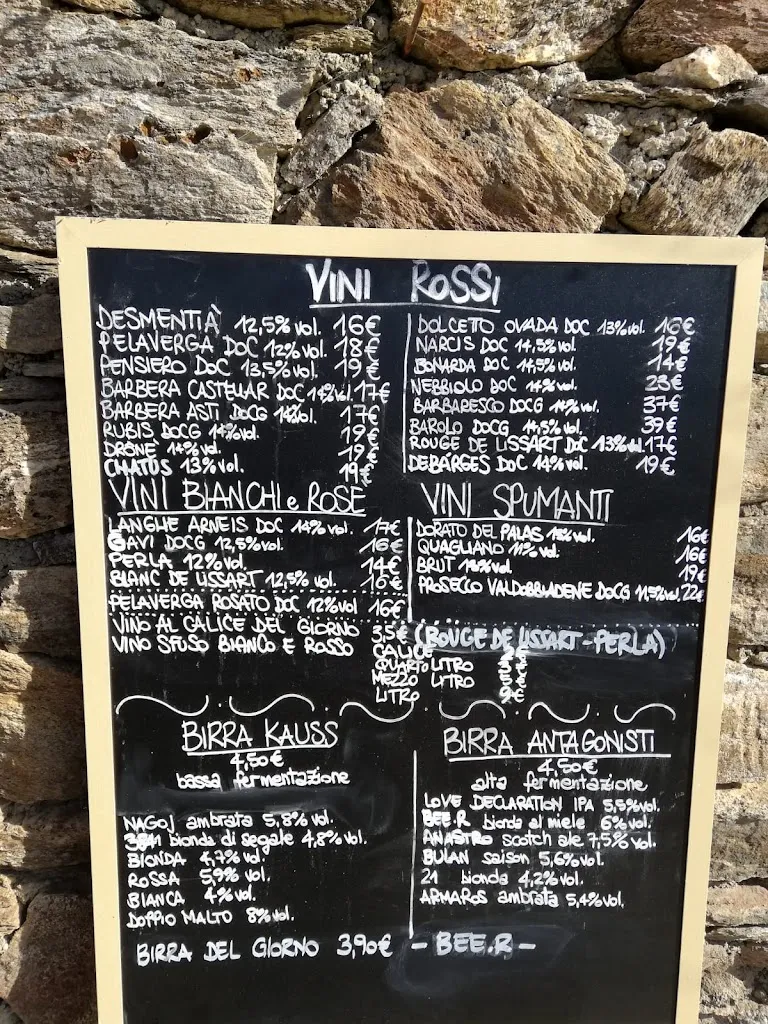 VINI ROSSI
DESMENTIÀ 12,5% vol. 16€
PELAVERGA DOC 12% vol. 18€
PENSIERO DOC 13,5% vol. 19€
BARBERA CASTELLAR DOC 14% vol. 17€
BARBERA ASTI DOCG 14% vol. 17€
RUBIS DOCG 14% vol. 19€
DRÔNE 14% vol. 19€
CHATUS 13% vol. 19€
DOLCETTO OVADA DOC 13% vol. 16€
NARCIS DOC 14,5% vol. 19€
BONARDA DOC 14,5% vol. 14€
NEBBIOLO DOC 14% vol. 23€
BARBARESCO DOCG 14% vol. 37€
BAROLO DOCG 14,5% vol. 39€
ROUGE DE LISSART DOC 13% vol. 17€
DEBÁRGES DOC 14% vol. 19€
VINI BIANCHI e ROSE
LANGHE ARNEIS DOC 14% vol. 17€
GAVI DOCG 12,5% vol. 16€
PERLA 12% vol. 14€
BLANC DE LISSART 12,5% vol. 16€
PELAVERGA ROSATO DOC 12% vol 16€
VINI SPUMANTI
DORATO DEL PALAS vol. 16€
QUAGLIANO 11% vol. 16€
BRUT vol. 19€
PROSECCO VALDOBBIADENE DOCG 11,5% vol. 22€
VINO AL CALICE DEL GIORNO 3,5€ (ROUGE DE LISSART - PERLA)
VINO SFUSO BIANCO E ROSSO CALICE
QUARTO LITRO
MEZZO LITRO
LITRO 9€
BIRRA KAUSS
4,50€
bassa fermentazione
NAGOJ ambrata 5,8% vol.
3841 bionda di segale 4,8% vol.
BIONDA 4,7% vol.
ROSSA 5,9% vol.
BIANCA 4% vol.
DOPPIO MALTO 8% vol.
BIRRA ANTAGONISTI
4,50€
alta fermentazione
LOVE DECLARATION IPA 5,5% vol.
BEE.R bionda al miele 6% vol.
ANASTRO scotch ale 7,5% vol.
BULAN saison 5,6% vol.
21 bionda 4,2% vol.
ARMAROS ambrata 5,4% vol.
BIRRA DEL GIORNO 3,90€ - BEE.R -